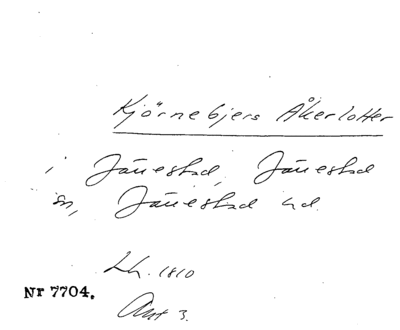 Kjörnebjers Åkerlotter
i Jänestad, Jänestad
sn, Jänestad hd.
Lh. 1810
Nr 7704.
Ant 3.